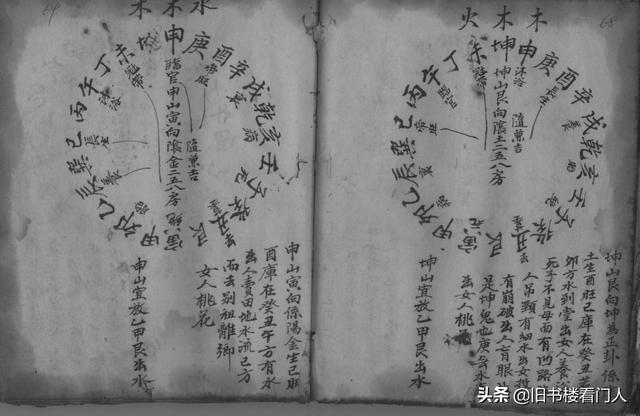 68
木
木
火
申
坤
未
丁
午
丙
巳
巽
辰
乙
卯
甲
寅
艮
丑
癸
子
壬
亥
乾
戌
辛
酉
庚
坤山艮向陰土二五八房
隨葉吉
沐浴
長生
養
臨官
帝旺
坤山艮向坤為正卦係
土生酉旺巳庫在癸丑
卯方水到堂出女人
死子不見母面有凹路
人吊頸有細水出女
有崩破出人盲眼
是坤鬼也庚
出女人桃花
坤山宜放乙甲艮出水
水
木
木
申
坤
未
丁
午
丙
巳
巽
辰
乙
卯
甲
寅
艮
丑
癸
子
壬
亥
乾
戌
辛
酉
庚
臨官申山寅向陰金二五八房
隨葉吉
帝旺
沐浴
長生
養
衰
病
申山寅向係陽金生巳旺
酉庫在癸丑午方有水
出人賣田地水流巳方
而去別祖離鄉
女人桃花
申山宜放乙甲艮出水
头条 @旧书楼看门人